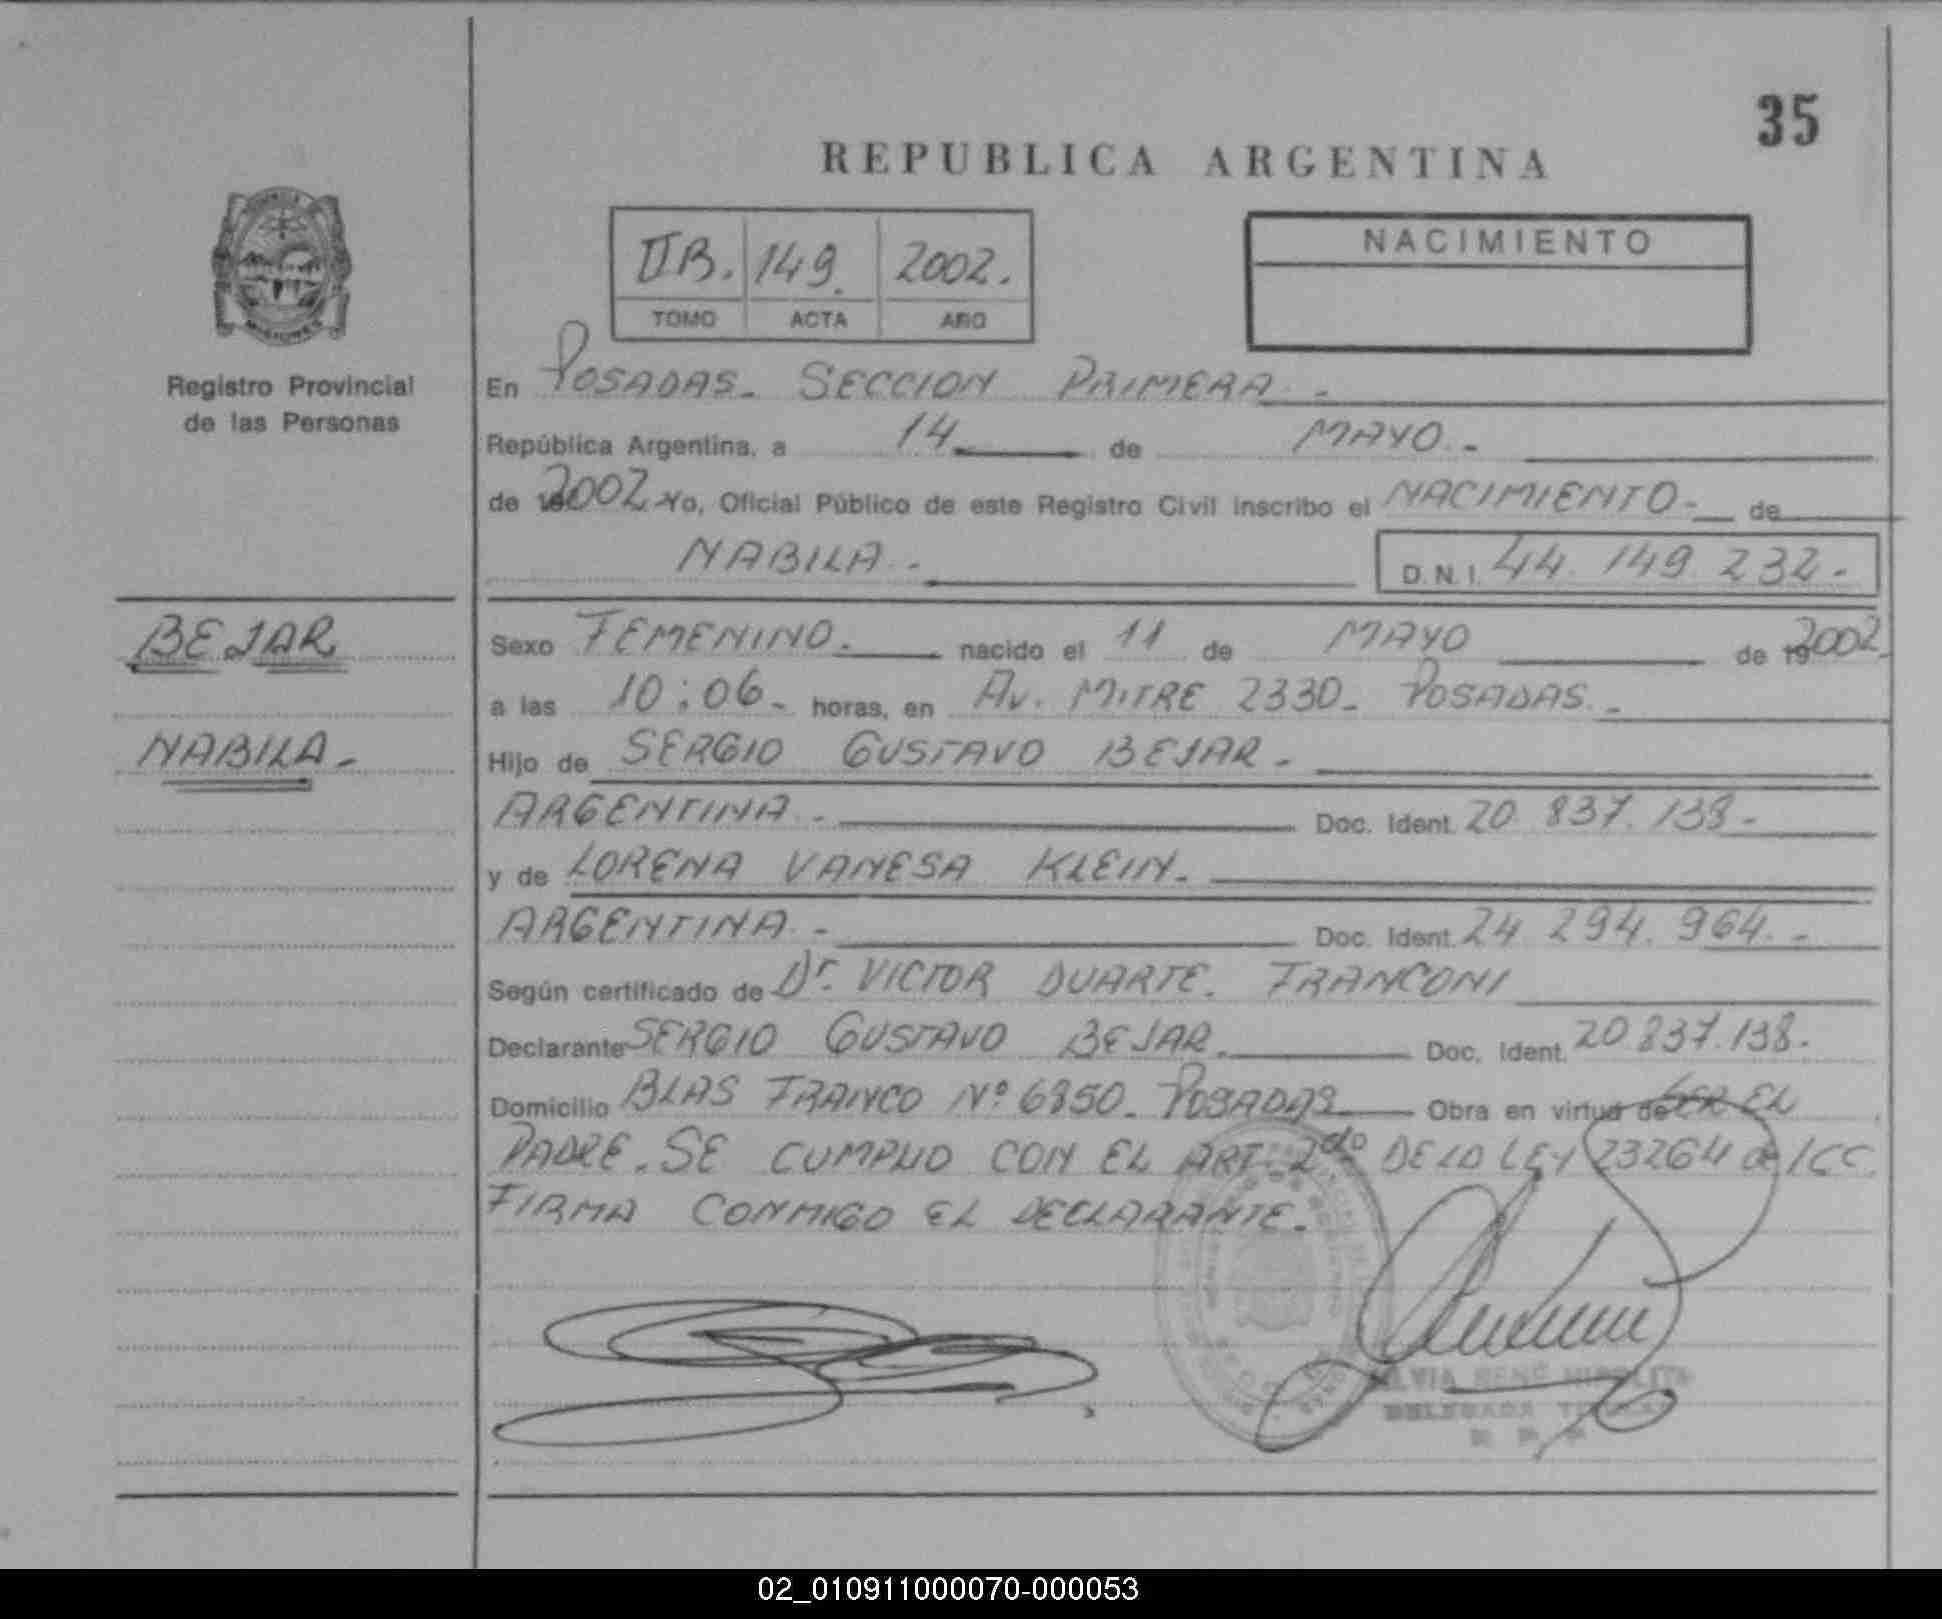 35
REPUBLICA ARGENTINA
IIB. 149. 2002.
TOMO ACTA AÑO
NACIMIENTO
MISIONES
Registro Provincial
de las Personas
En POSADAS - SECCION PRIMERA. -
República Argentina, a 14 de MAYO. -
de 2002 - Yo, Oficial Público de este Registro Civil inscribo el NACIMIENTO - de
NABILA. - D.N.I. 44.149.232.-
BEJAR
NABILA -
Sexo FEMENINO. nacido el 11 de MAYO de 192002.
a las 10:06 - horas, en AV. MITRE 2330 - POSADAS. -
Hijo de SERGIO GUSTAVO BEJAR. -
ARGENTINA. - Doc. Ident. 20.837.138.-
y de LORENA VANESA KLEIN. -
ARGENTINA. - Doc. Ident. 24.294.964.-
Según certificado de Dr. VICTOR DUARTE. FRANCONI
Declarante SERGIO GUSTAVO BEJAR. Doc. Ident. 20.837.138.
Domicilio BLAS FRANCO Nº 6850 - POSADAS Obra en virtud de SER EL
PADRE. SE CUMPLIO CON EL ART. 2do DE LA LEY 23264 del CC.
FIRMA CONMIGO EL DECLARANTE.
DELEGADA
02_010911000070-000053